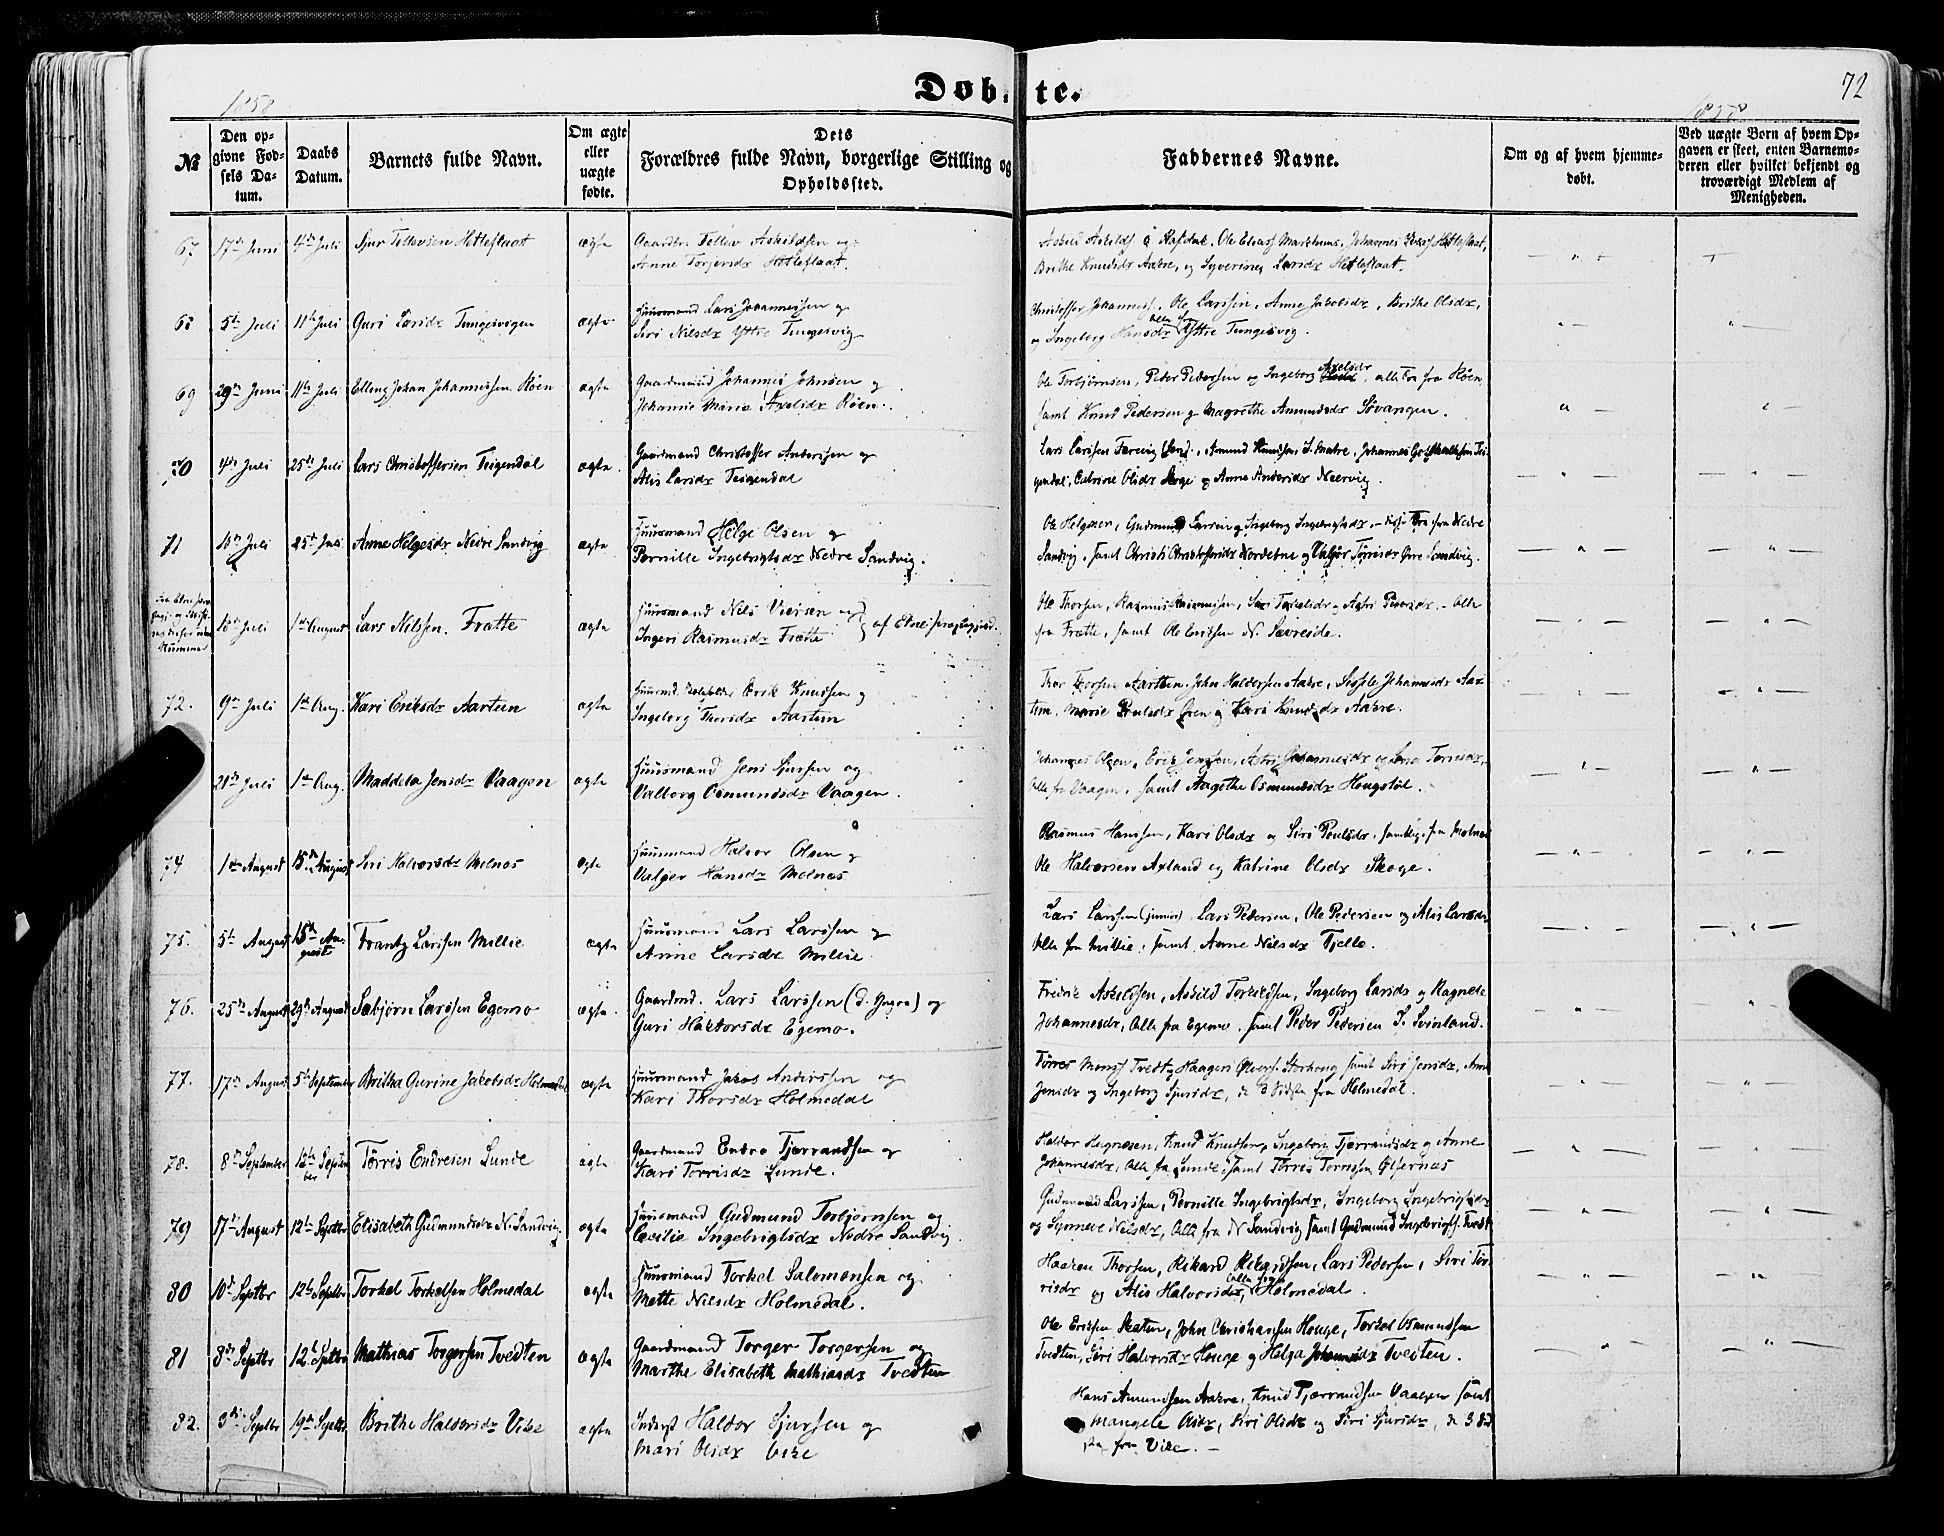 Døbte.
72
1858
№
Den opgivne Fødsels Datum.
Daabs Datum.
Barnets fulde Navn.
Om ægte eller uægte fødte.
Dets Forældres fulde Navn, borgerlige Stilling og Opholdssted.
Faddernes Navne.
Om og af hvem hjemmedøbt.
Ved uægte Børn af hvem Opgaven er skeet, enten Barnemoderen eller hvilket bekjendt og troværdigt Medlem af Menigheden.
67 17de Juni 4de Juli Sjur Tellevsen Hetleflaat ægte Gaardbr. Tellev Askildsen og
Anne Torjersdr Hetleflaat.
Brithe Knudsdr Aakre, og Syverine Larsdr Hetleflaat.
68 5te Juli 11te Juli Guri Larsdr Tungesvigen ægte Huusmand Lars Johannessen og
Siri Nilsdr Ystre Tungesvig
Christoffer Johanness., Ole Larssen, Anne Jakobsdr, Brithe Olsdr,
og Ingeborg Hansdr alle fra Ystre Tungesvig.
69 29de Juni 11te Juli Elling Johan Johannessen Røen ægte Gaardmand Johannes Johnsen og
Johanne Marie Axelsdr Røen.
Ole Torbjørnsen, Peder Pedersen og Ingeborg Axelsdr, alle fra Røen
samt Knud Pedersen og Magrethe Amundsdr Søvangen.
70 4de Juli 25de Juli Lars Christoffersen Teigendal ægte Gaardmand Christoffer Anderssen og
Alis Larsdr Teigendal
gendal, Catrine Olsdr Skoge og Anne Andersdr Neervig.
71 Juli 25de Juli Anne Helgesdr Nedre Sandvig ægte Huusmand Helge Olsen og
Pernille Ingebrigtsdr Nedre Sandvig.
Ole Helgesen, Gudmund Larsen og Ingeborg Ingebrigtsdr, fra Nedre
Sandvig, samt Christi Christoffersdr Nordetne og Valgjør Tørrisdr Øvre Sandvig.
Juli 1ste August Lars Nilssen. Frette ægte Huusmand Nils Iversen og
Ingeri Rasmusdr Frette } af Etne Præstegjeld.
Ole Thorsen, Rasmus Rasmussen, Siri Torkelsdr og Astri Pedersdr. - Alle
fra Frette, samt Ole Eriksen N. Sævreide.
72. 9de Juli 1ste Aug. Kari Eriksdr Aartun ægte Huusmd. Erik Knudsen og
Ingeborg Thorsdr Aartun
Thor Thorsen Aartun, John Haldorsen Aakre, Sissele Johannesdr Aar-
tun, Marie Poulsdr Øren og Kari Knudsdr Aakre.
21de Juli 1ste Aug. Maddela Jensdr Vaagen ægte Huusmand Jens Sjursen og
Valborg Osmundsdr Vaagen.
Johannes Olsen, Erik Jenssen, Astri Johannesdr og Lena Tørrisdr,
Alle fra Vaagen, samt Aagothe Osmundsdr Hougstøl.
74 1ste August 15de August Siri Halvorsdr Molnes ægte Huusmand Halvor Olsen og
Valgjer Hansdr Molnes
Rasmus Hanssen, Kari Olsdr og Siri Poulsdr, samtlige fra Molnes
Ole Halvorsen Axland og Katrine Olsdr Skoge.
75. 5te August 15de August Frantz Larssen Millie ægte Huusmand Lars Larssen og
Anne Larsdr Millie
Lars Larssen (junior), Lars Pedersen, Ole Pedersen og Alis Larsdr
Alle fra Millie, samt Anne Nilsdr Tjelle.
76. 25de August 29de August Sæbjørn Larssen Egemo ægte Gaardmd. Lars Larssen (d. Yngre) og
Guri Haktorsdr Egemo.
Fredrik Askildsen, Askild Torkildsen, Ingeborg Larsdr og Ragnele
Johannesdr, Alle fra Egemo, samt Peder Pedersen I. Svinland.
77. 17de August 5te September Britha Gurine Jakobsdr Holmedal ægte Huusmand Jakob Anderssen og
Kari Thorsdr Holmedal
Tørres Monss. Tvedt og Haagen Øvers. Storhoug samt Siri Jensdr, Anne
Jensdr og Ingeborg Sjursdr, de 3 Sidste fra Holmedal.
78. 8de September 12te September Tørris Endresen Lunde ægte Gaardmand Endre Tjerrandsen og
Kari Tørrisdr Lunde.
Haldor Magnesen, Knud Knudsen, Ingeborg Tjerrandsdr og Anne
Johannesdr, Alle fra Lunde, samt Tørres Tørrissen Ølfernes
79 17de August 12te Septbr Elisabeth Gudmundsdr N. Sandvig ægte Huusmand Gudmund Torbjørnsen og
Cecilie Ingebrigtsdr Nedre Sandvig.
Gudmund Larssen, Pernille Ingebrigtsdr, Ingeborg Ingebrigtsdr
og Synneve Nilsdr, Alle fra N. Sandvig samt Gudmund Ingebrigts. Tvedt
80 10de Septbr 12te Septbr Torkel Torkelsen Holmedal ægte Huusmand Torkel Salomonsen og
Mette Nilsdr Holmedal.
Haaken Thorsen, Rikard Rikardsen, Lars Pedersen, Siri Tør-
risdr og Alis Halvorsdr, alle fra Holmedal.
81 8de Septbr 12te Septbr Mathias Torgersen Tvedten ægte Gaardmand Torger Torgersen og
Marthe Elisabeth Mathiasdr Tvedten
Ole Erikssen Skaten, John Christiansen Houge, Torkel Osmundsen
Tvedten, Siri Halvorsdr Houge og Helga Johannesdr Tvedten.
82. 3de Septbr 19de Septbr Brithe Haldorsdr Vike ægte Inderst Haldor Sjursen og
Mari Olsdr Vike
Hans Amundsen Aakre, Knud Tjerrandsen Vaagen samt
Mangele Olsdr, Siri Olsdr og Siri Sjursdr, de 3 Sid-
ste fra Vike.